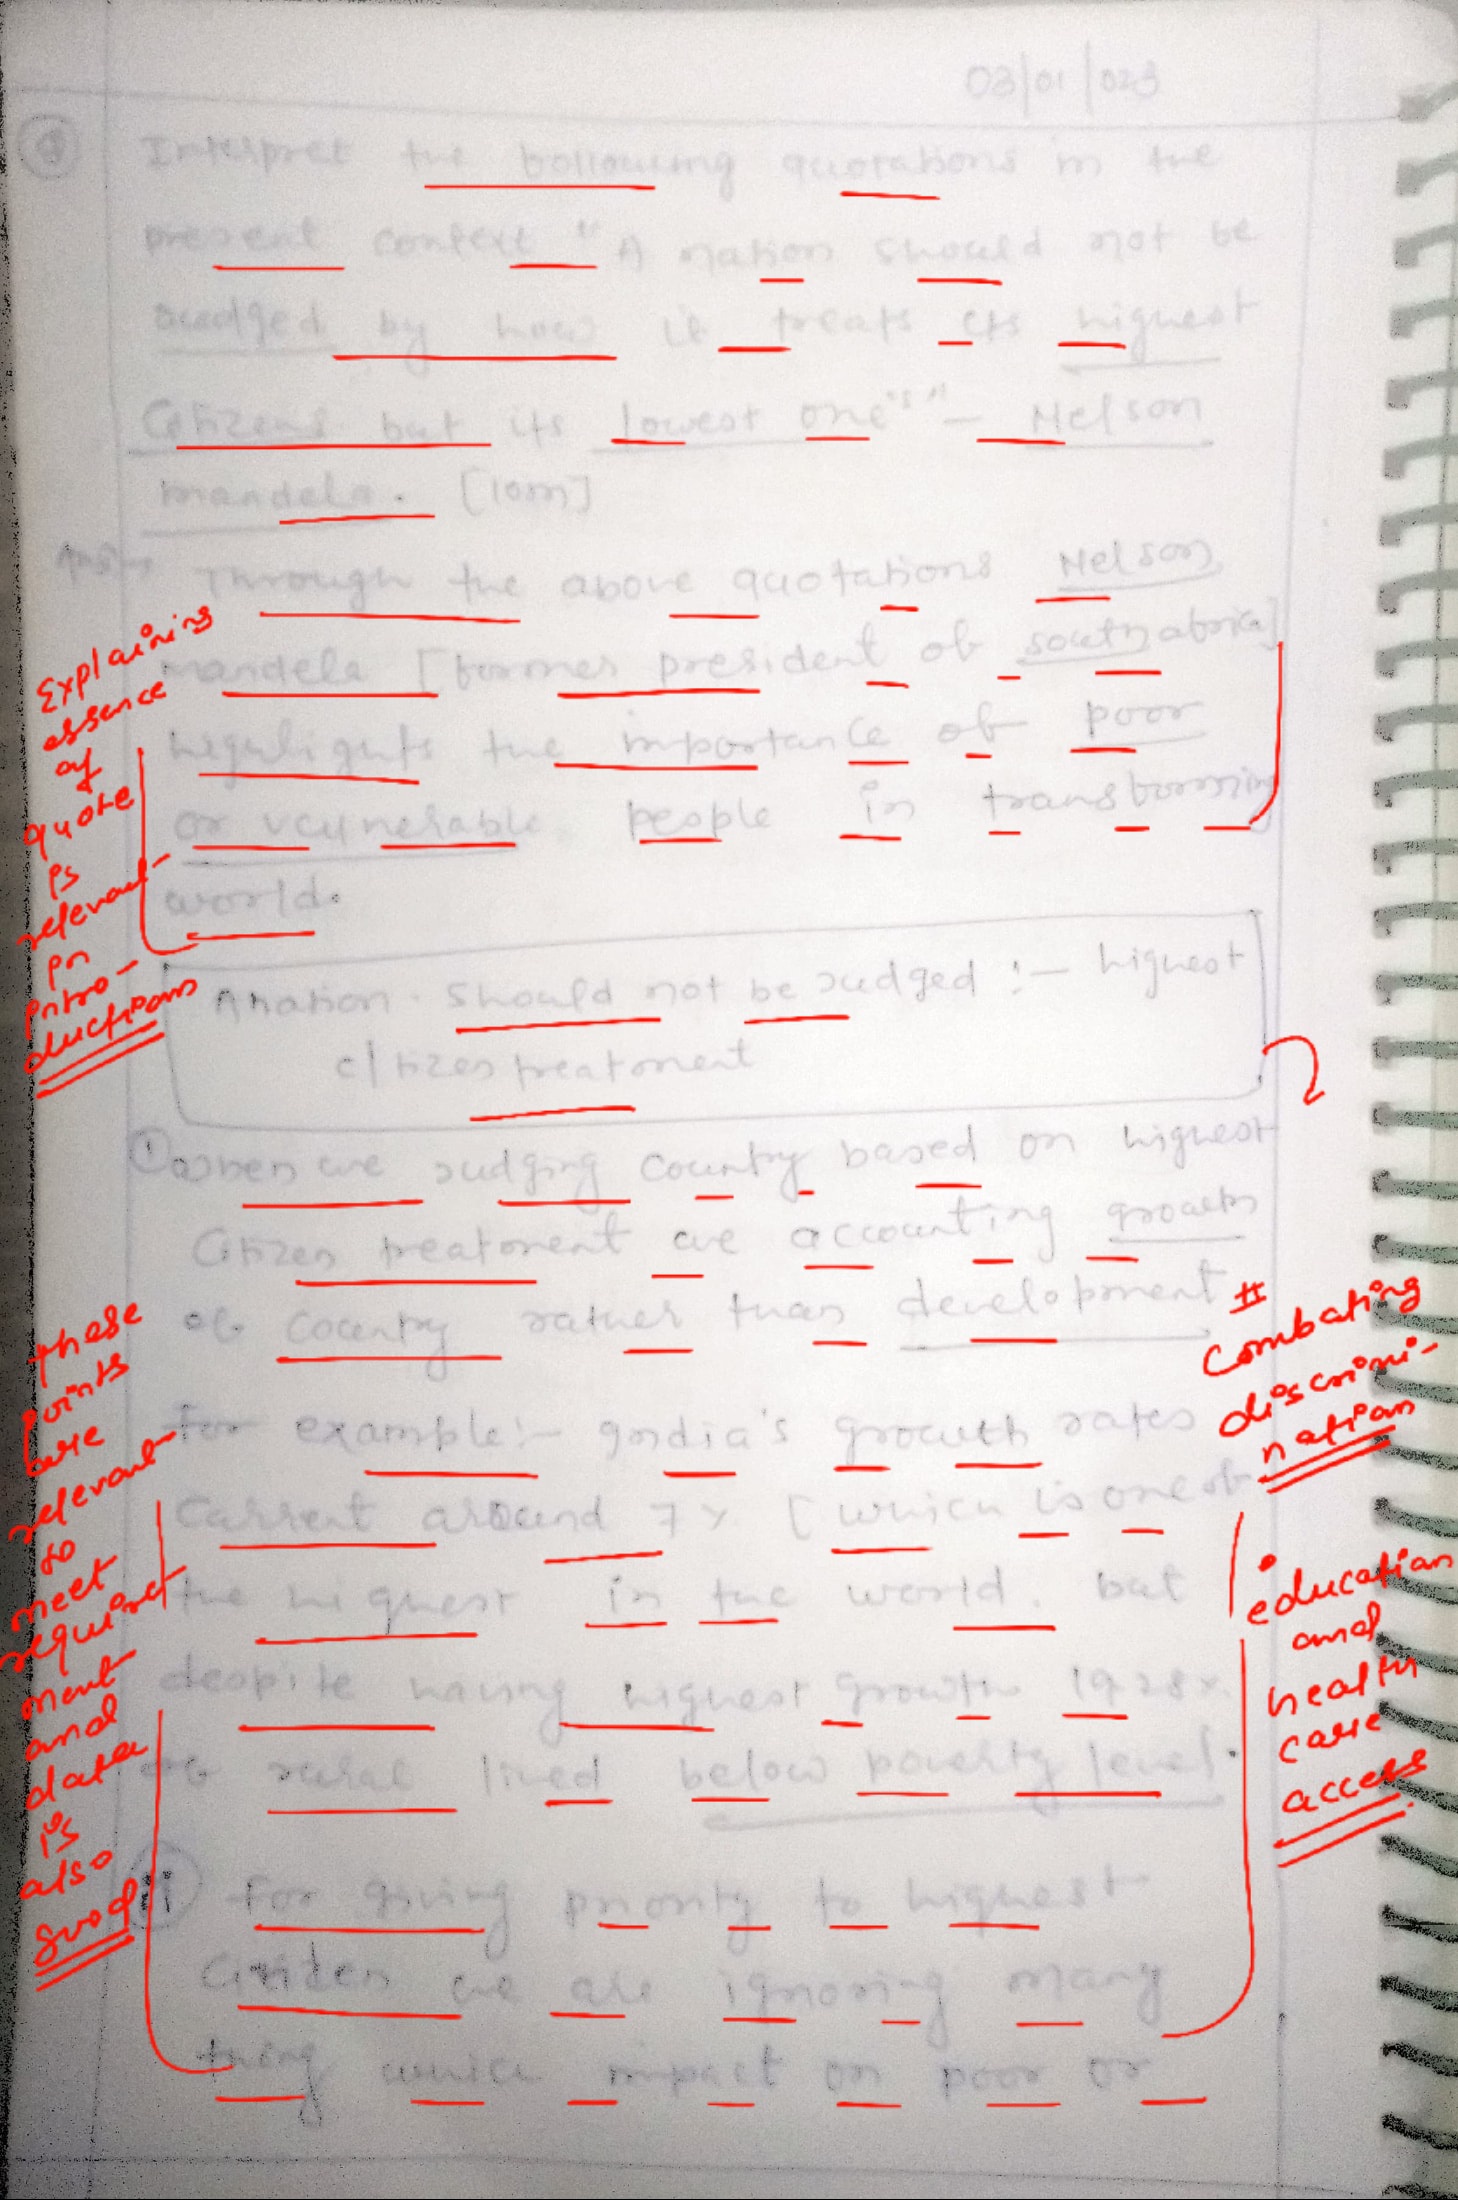 03/01/023
9 Interpret the bollowing quotations in the
present context "A nation should not be
Judged by how it treats its highest
Citizens but its lowest one's" - Nelson
mandela. [10m]
Ans:→ Through the above quotations Nelson
mandela [bormer president ob south abrica]
highlights the importance ob poor
or vulnerable people in transborming
world.
A nation should not be Judged :- highest
citizen treatment
① when we Judging country based on highest
Citizen treatment we accounting growth
ob Country rather than development
For example:- India's growth rates
Current around 7% [which is one ob
the highest in the world. but
despite having highest growth 19.28%
ob rural lived below poverty level.
ii For giving priority to highest
Citizen we are ignoring many
thing which impact on poor or
Explaining
essence
of
quote
is
relevant
in
intro-
ductions
these
points
are
relevant
to
meet
requirest
ment
and
data
is
also
good
#
Combating
discrimi-
nation
• education
and
health
care
access